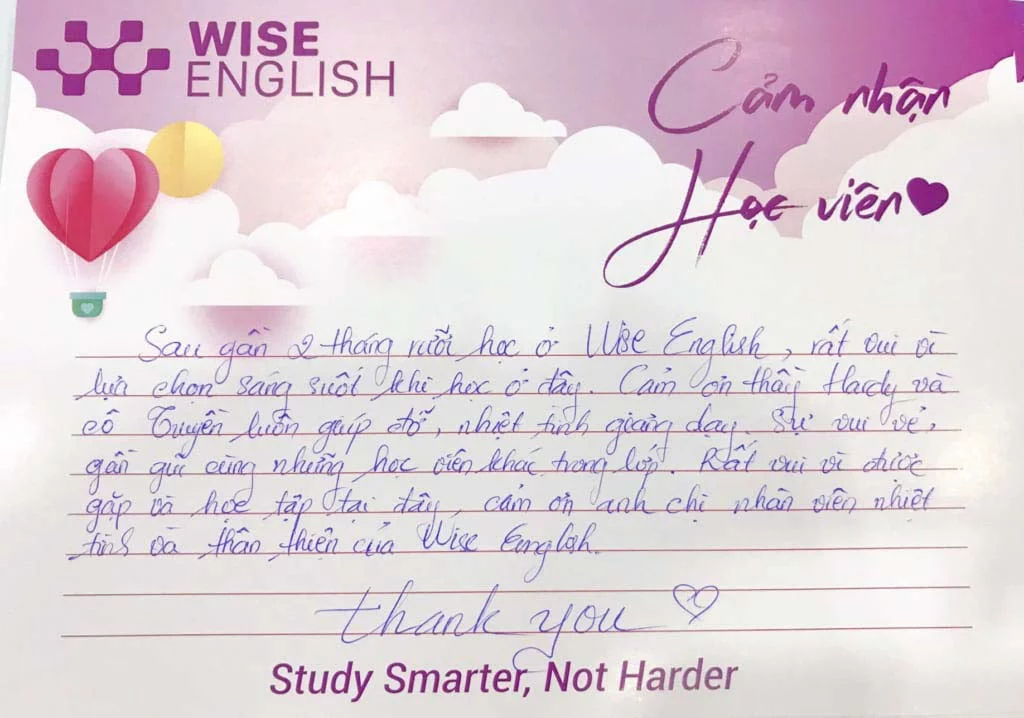 WISE
ENGLISH
Cảm nhận
Học viên
Sau gần 2 tháng rưỡi học ở Wise English, rất vui vì
lựa chọn sáng suốt khi học ở đây. Cảm ơn thầy Hardy và
cô Truyền luôn giúp đỡ, nhiệt tình giảng dạy. Sự vui vẻ,
gần gũi cùng những học viên khác trong lớp. Rất vui vì được
gặp và học tập tại đây, cảm ơn anh chị nhân viên nhiệt
tình và thân thiện của Wise English.
thank you
Study Smarter, Not Harder